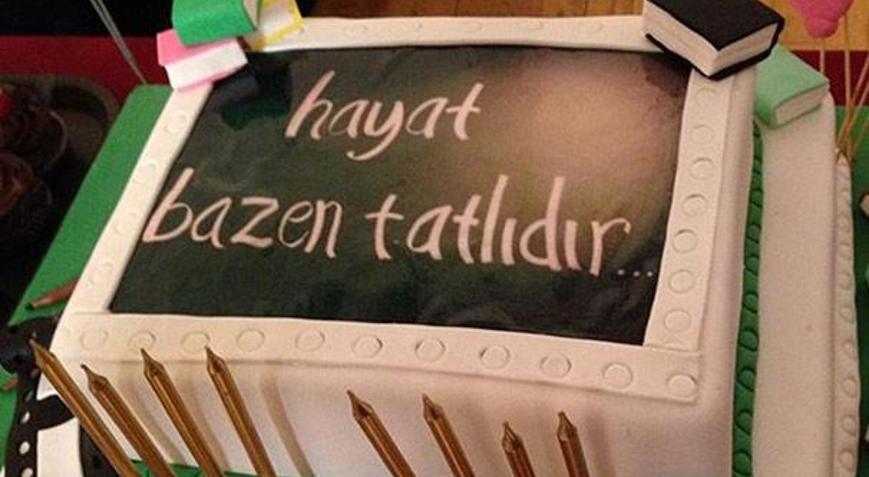 hayat
bazen tatlıdır...